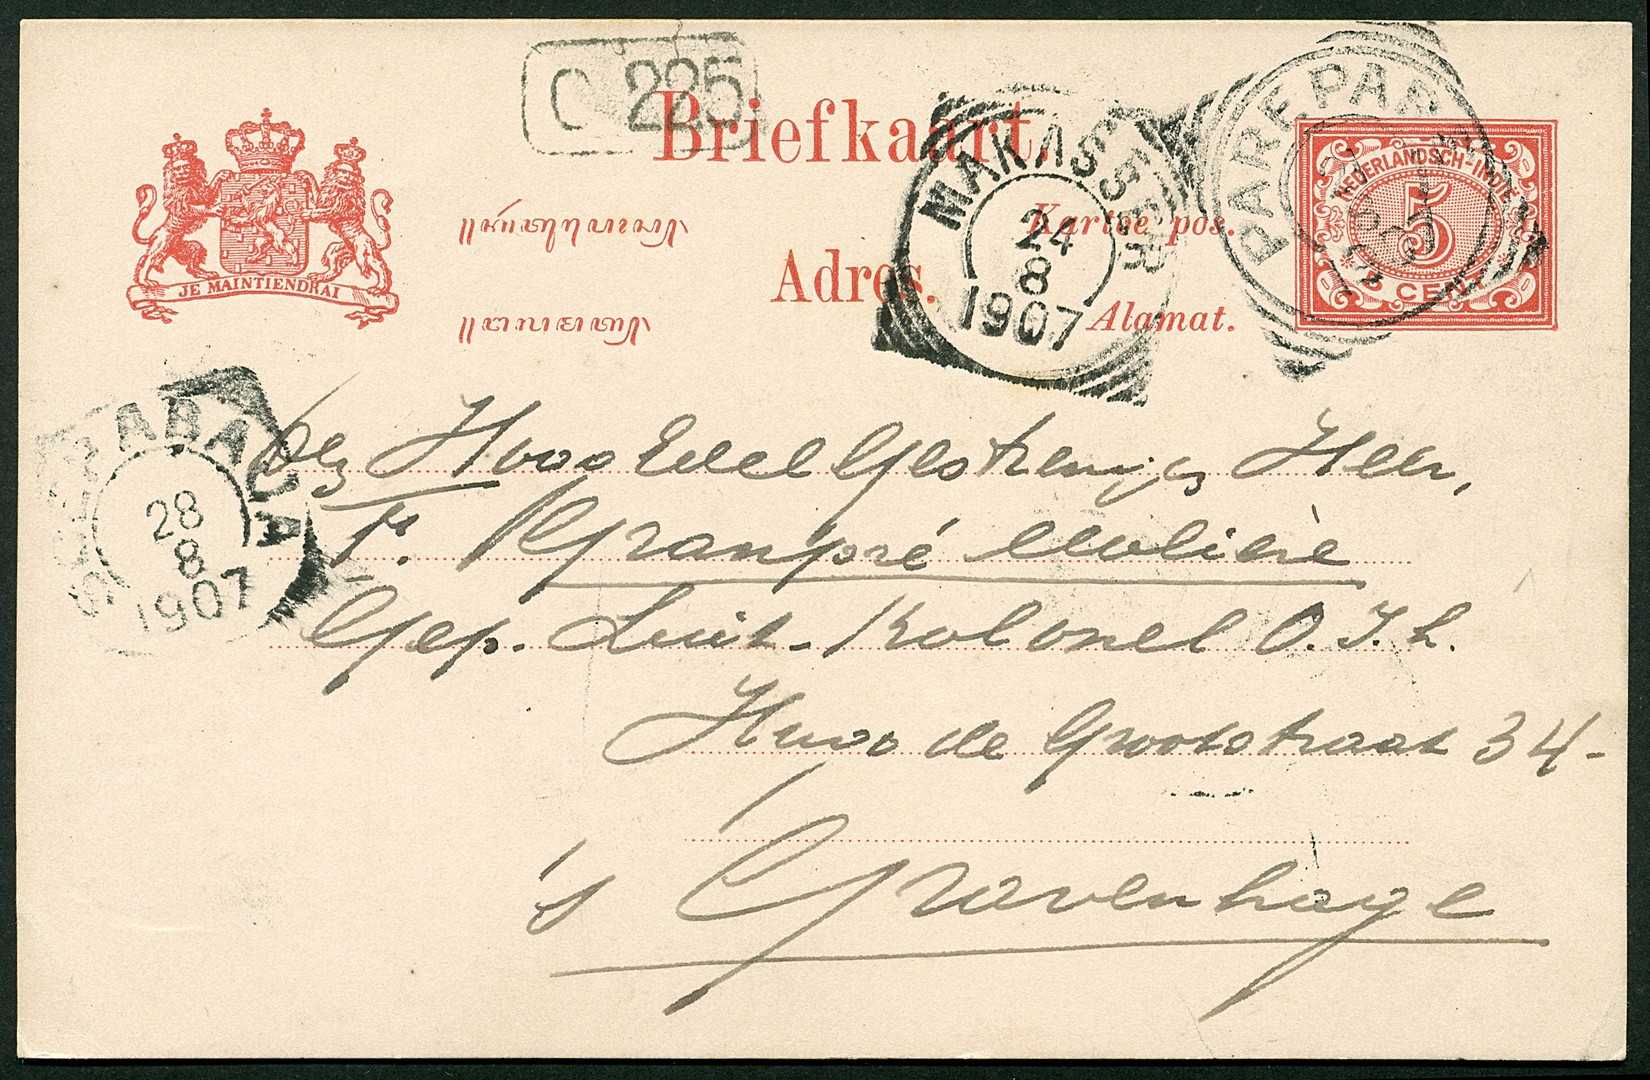 C 225
Briefkaart.
MAKASSER
24
8
1907
PARE PARE
NEDERLANDSCH-INDIË
5
CENT
JE MAINTIENDRAI
Kartoe pos.
Adres.
Alamat.
SOERABAJA
28
8
1907
Hoog Edel Gestrenge Heer,
F. Granpré Molière
Gep. Luit. Kolonel O.I.L.
Hugo de Grootstraat 34-
's Gravenhage